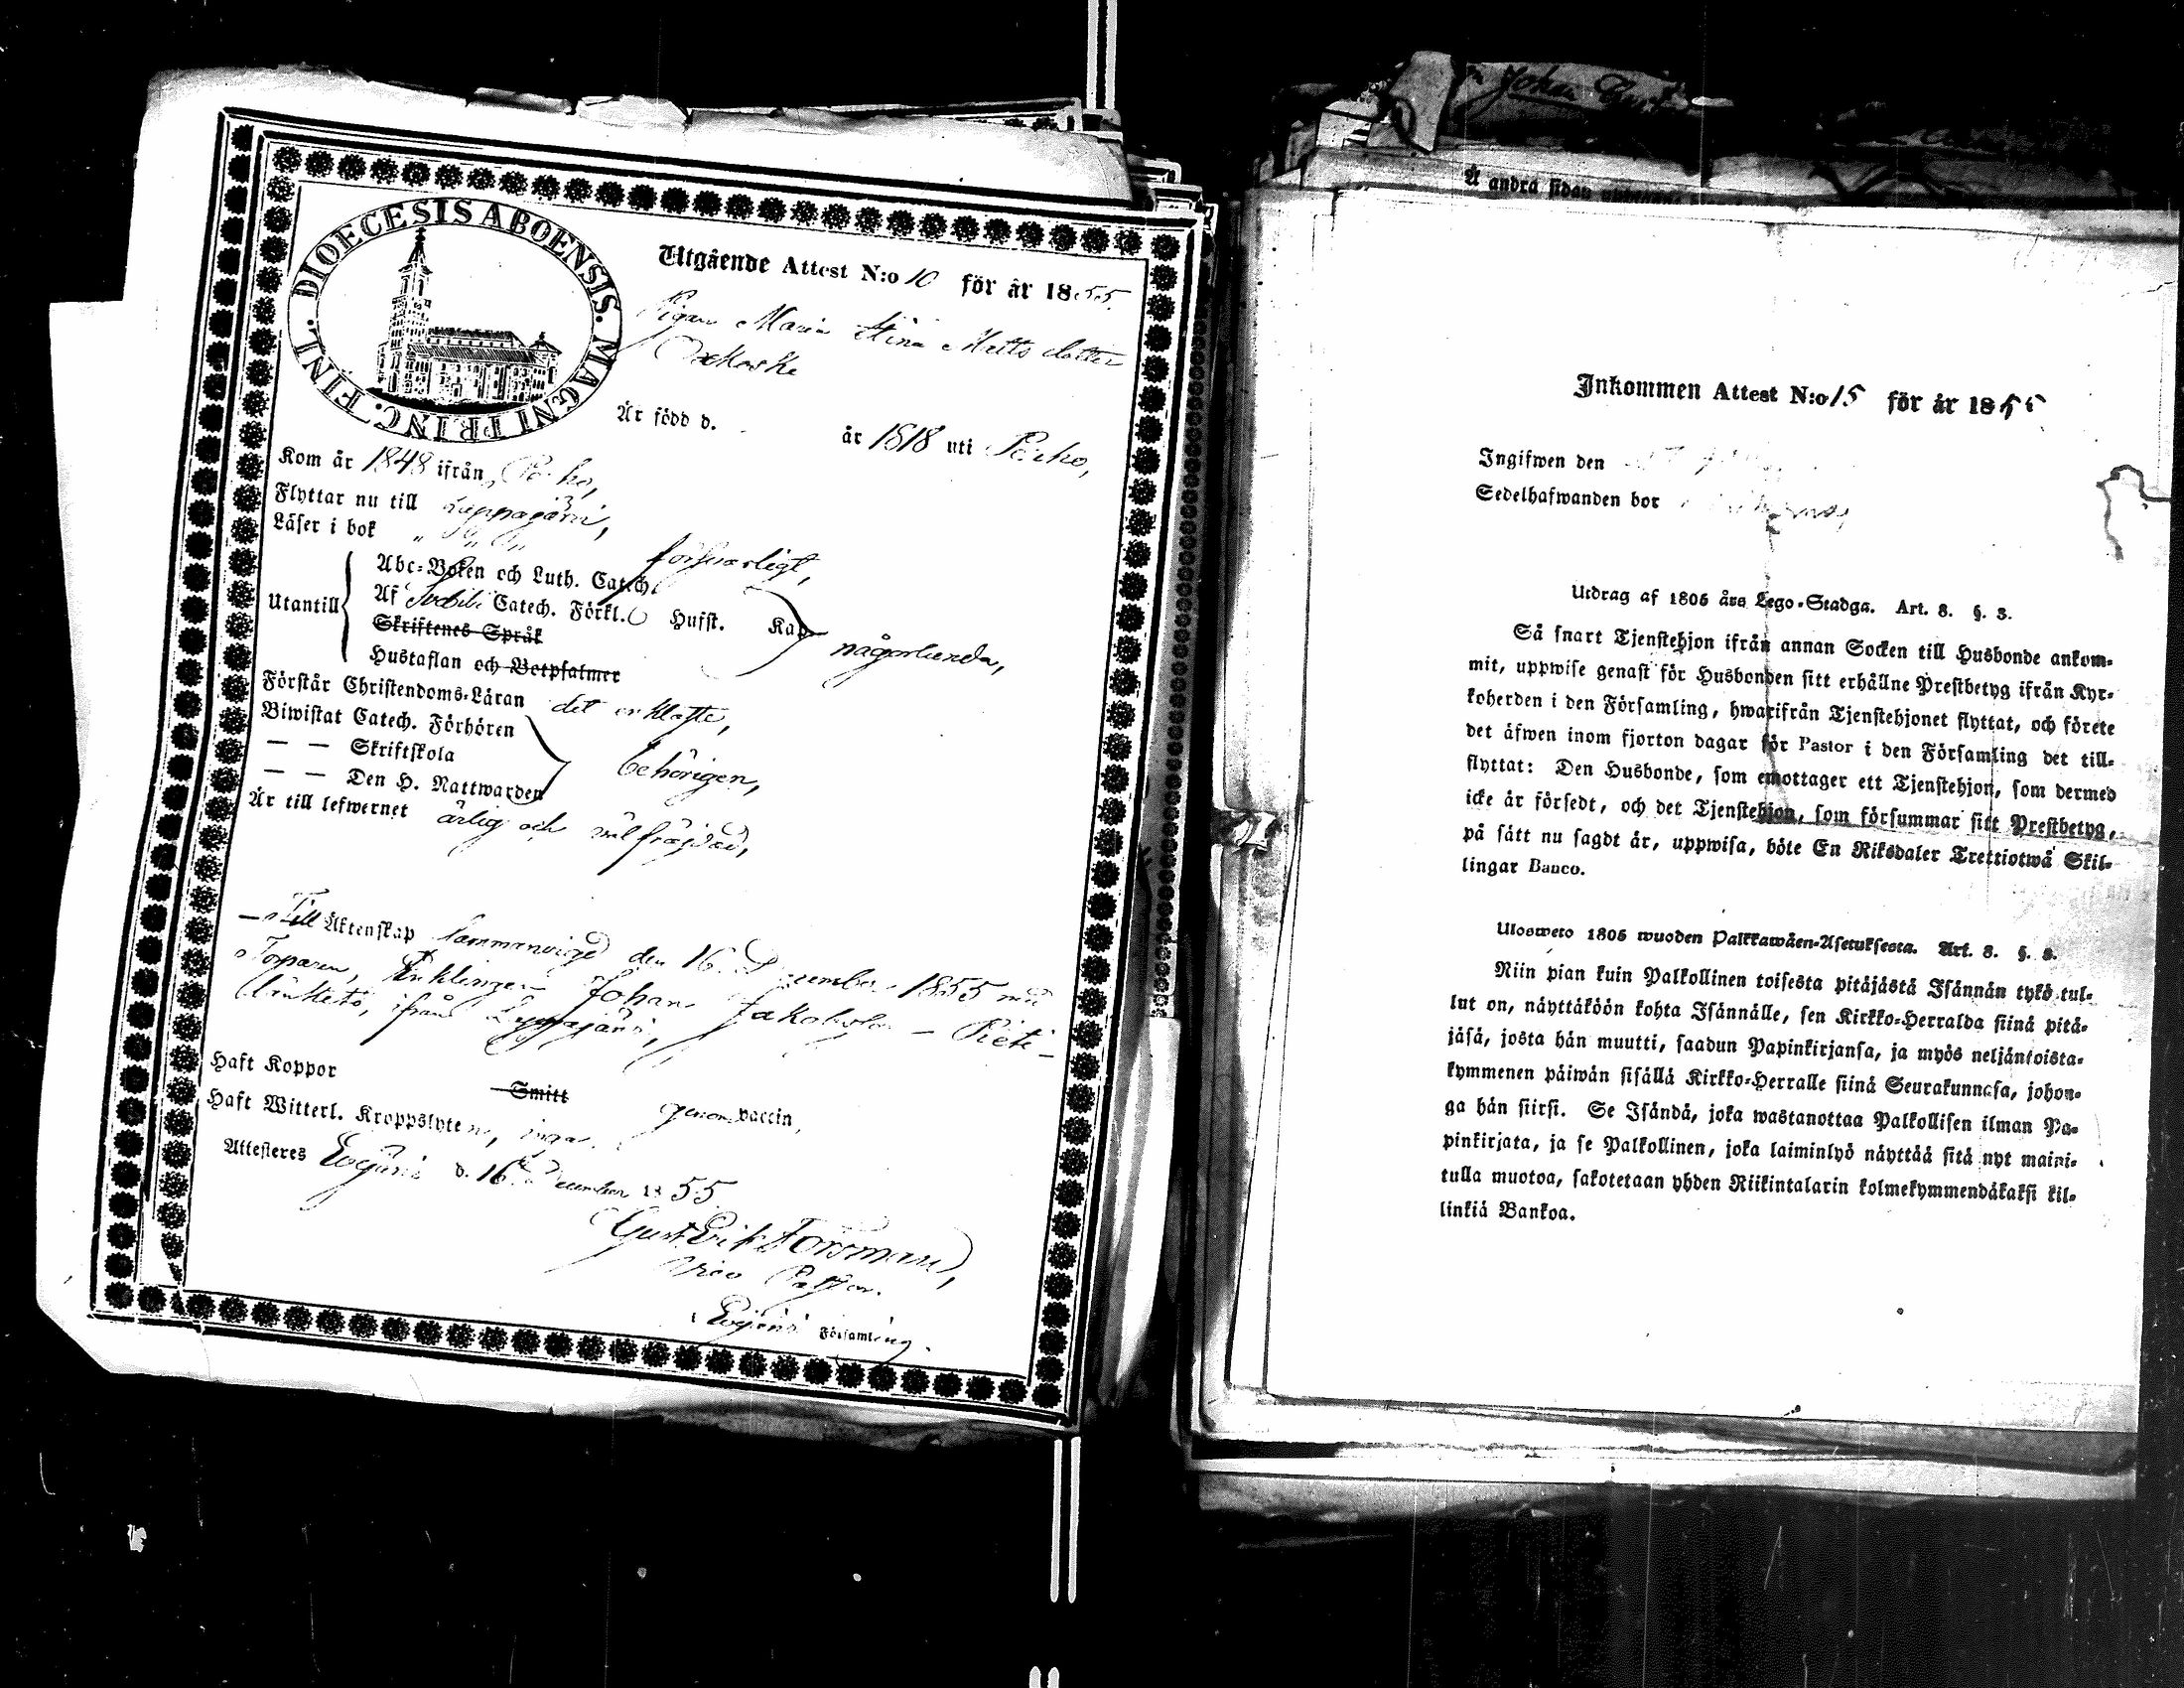 John
Å andra sidan
DIOECESIS ABOENSIS. MAGNI PRINC. FINL.
Utgående Attest N:o 10 för år 1855.
Pigan Maria Stina Matts dotter
Är född d. år 1818 uti
Kom år 1848 ifrån
Flyttar nu till Luppajärvi,
Läser i bok försvarligt,
Utantill
Abc-Boken och Luth. Catech.
Af Svebilii Catech. Förkl. Husst. Kap
Skriftenes Språk
Hustaflan och Botpsalmer
någorlunda,
Förstår Christendoms-Läran det enklaste,
Biwistat Catech. Förhören
— — Skriftskola
— — Den H. Nattwarden
behörigen,
Är till lefwernet ärlig och välfräjdad,
Till Äktenskap sammanvigd den 16 December 1855 med
Torparen, Enklingen Johan Jakobsson
ifrån
Haft Koppor Smitt genom vaccin,
Haft Witterl. Kroppslyten, inga.
Attesteres d. 16 December 1855
Gust Erik Forsman,
Vice Pastor.
Församling.
Inkommen Attest N:o 15 för år 1855
Ingifwen den
Sedelhafwanden bor
Utdrag af 1805 års Lego-Stadga. Art. 8. §. 3.
Så snart Tjenstehjon ifrån annan Socken till Husbonde ankom-
mit, uppwise genast för Husbonden sitt erhållne Prestbetyg ifrån Kyr-
koherden i den Församling, hwarifrån Tjenstehjonet flyttat, och förete
det äfwen inom fjorton dagar för Pastor i den Församling det till-
flyttat: Den Husbonde, som emottager ett Tjenstehjon, som dermed
icke är försedt, och det Tjenstehjon, som försummar sitt Prestbetyg,
på sätt nu sagdt är, uppwisa, böte En Riksdaler Trettiotwå Skil-
lingar Banco.
Ulosweto 1805 wuoden Palkkawäen-Asetuksesta. Art. 8. §. 3.
Niin pian kuin Palkollinen toisesta pitäjästä Isännän tykö tul-
lut on, näyttäköön kohta Isännälle, sen Kirkko-Herralda siinä pitä-
jäsä, josta hän muutti, saadun Papinkirjansa, ja myös neljäntoista-
kymmenen päiwän sisällä Kirkko-Herralle siinä Seurakunnasa, johon-
ga hän siirsi. Se Isändä, joka wastanottaa Palkollisen ilman Pa-
pinkirjata, ja se Palkollinen, joka laiminlyö näyttää sitä nyt maini-
tulla muotoa, sakotetaan yhden Riikintalarin kolmekymmendäkaksi kil-
linkiä Bankoa.